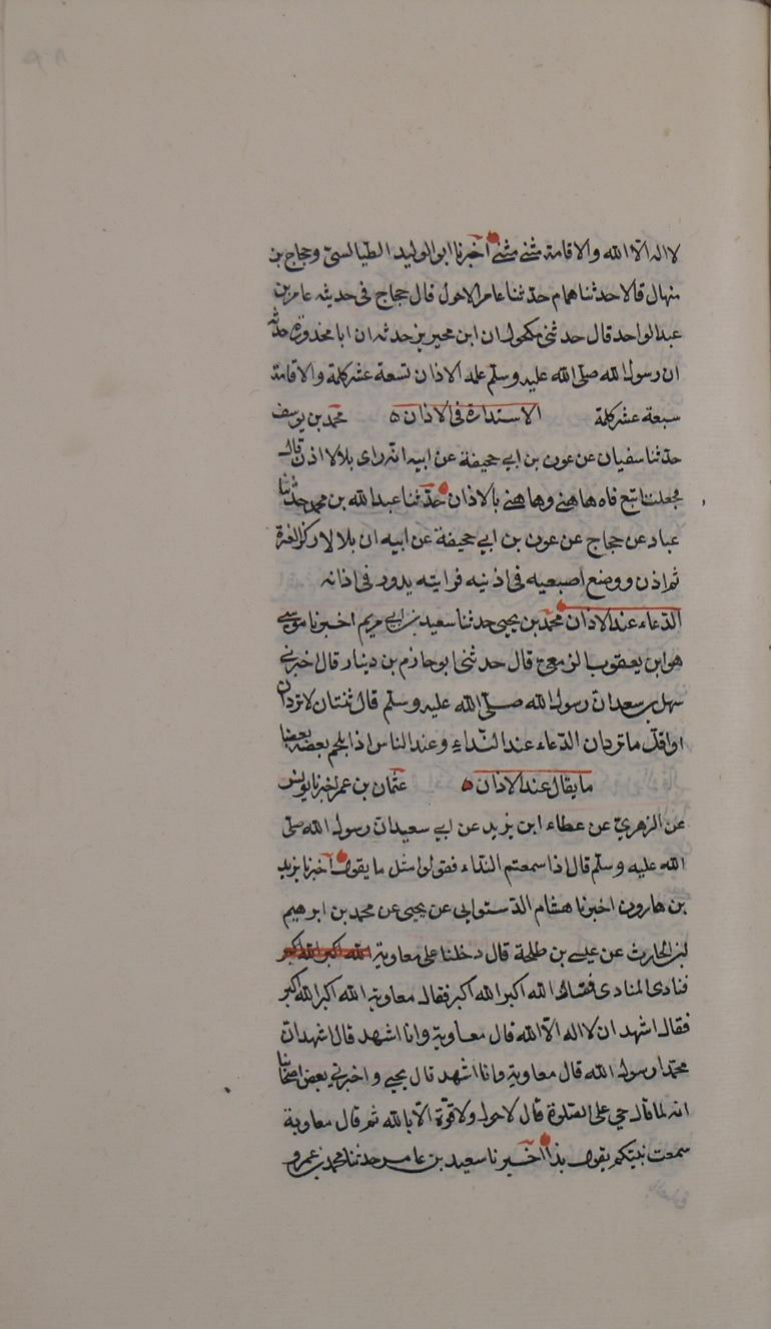 لا اله الا الله والاقامة مثنى مثنى اخبرنا ابو الوليد الطيالسي وحجاج بن
منهال قالا حدثنا همام حدثنا عامر الاحول قال حجاج فى حديثه عامر بن
عبد الواحد قال حدثنى مكحول ان ابن محيريز حدثه ان ابا محذورة حدثه
ان رسول الله صلى الله عليه وسلم علمه الاذان تسعة عشر كلمة والاقامة
سبعة عشر كلمة الاستدارة فى الاذان ه محمد بن يوسف
حدثنا سفيان عن عون بن ابي جحيفة عن ابيه انه راى بلالا اذن قال
فجعلت اتبع فاه هاهنى وهاهنى بالاذان حدثنا عبد الله بن محمد حدثنا
عباد عن حجاج عن عون بن ابي جحيفة عن ابيه ان بلالا ركز العنزة
ثم اذن ووضع اصبعيه فى اذنيه فرايته يدور فى اذانه
الدعاء عند الاذان محمد بن يحيى حدثنا سعيد بن ابي مريم اخبرنا موسى
هو ابن يعقوب الزمعي قال حدثنى ابو حازم بن دينار قال اخبرنى
سهل بن سعد ان رسول الله صلى الله عليه وسلم قال ثنتان لا تردان
او اقل ما تردان الدعاء عند النداء وعند الباس اذا يلحم بعضه بعضا
ما يقال عند الاذان ه عثمان بن عمر اخبرنا يونس
عن الزهري عن عطاء ابن يزيد عن ابي سعيد ان رسول الله صلى
الله عليه وسلم قال اذا سمعتم النداء فقولوا مثل ما يقول اخبرنا يزيد
بن هارون اخبرنا هشام الدستوايى عن يحيى عن محمد بن ابرهيم
بن الحارث عن عيسى بن طلحة قال دخلنا على معاوية الله اكبر الله اكبر
فنادى المنادى فقال الله اكبر الله اكبر فقال معاوية الله اكبر الله اكبر
فقال اشهد ان لا اله الا الله قال معاوية وانا اشهد قال اشهد ان
محمدا رسول الله قال معاوية وانا اشهد قال يحيى واخبرنى بعض اصحابنا
انه لما قال حي على الصلوة قال لا حول ولا قوة الا بالله ثم قال معاوية
سمعت نبيكم يقول بذا اخبرنا سعيد بن عامر حدثنا محمد بن عمرو